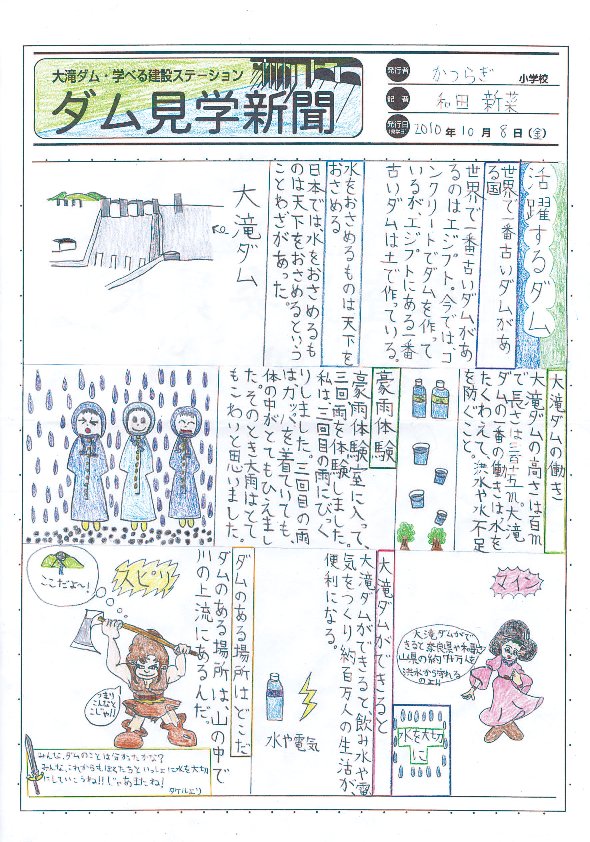 大滝ダム・学べる建設ステーション
ダム見学新聞
発行者 かつらぎ 小学校
記者 和田 新菜
発行日 2010年10月8日(金)
活躍するダム
世界で一番古いダムがあ
る国
世界で一番古いダムがあ
るのはエジプト。今ではコ
ンクリートでダムを作って
いるがエジプトにある一番
古いダムは土で作っている。
水をおさめるものは天下を
おさめる
日本では水をおさめるも
のは天下をおさめるという
ことわざがあった。
大滝ダム
大滝ダムの働き
大滝ダムの高さは百m
で長さは三百十五m大滝
ダムの一番の働きは水を
たくわえて、洪水や水不足
を防ぐこと。
豪雨体験
豪雨体験室に入って、
三回雨を体験しました。
私は、三回目の雨にびっく
りしました。三回目の雨
はカッパを着ていても、
体の中がとてもひえまし
た。そのとき大雨はとて
もこわいと思いました。
マイン
大滝ダムがで
きると奈良県や和歌
山県の約74万人を
洪水から守れる
のより
水を大切
に
大滝ダムができると
大滝ダムができると飲み水や電
気をつくり約百万人の生活が
便利になる。
水や電気
ダムのある場所はどこだ
ダムのある場所は、山の中で
川の上流にあるんだ。
ここだよ〜!
スピリ
つまり
こんなと
こじゃ!!
みんな、ダムのことは分かったかな?
みんな、これからもぼくたちといっしょに水を大切
にしていこうね!!じゃあまたね!
タケルより